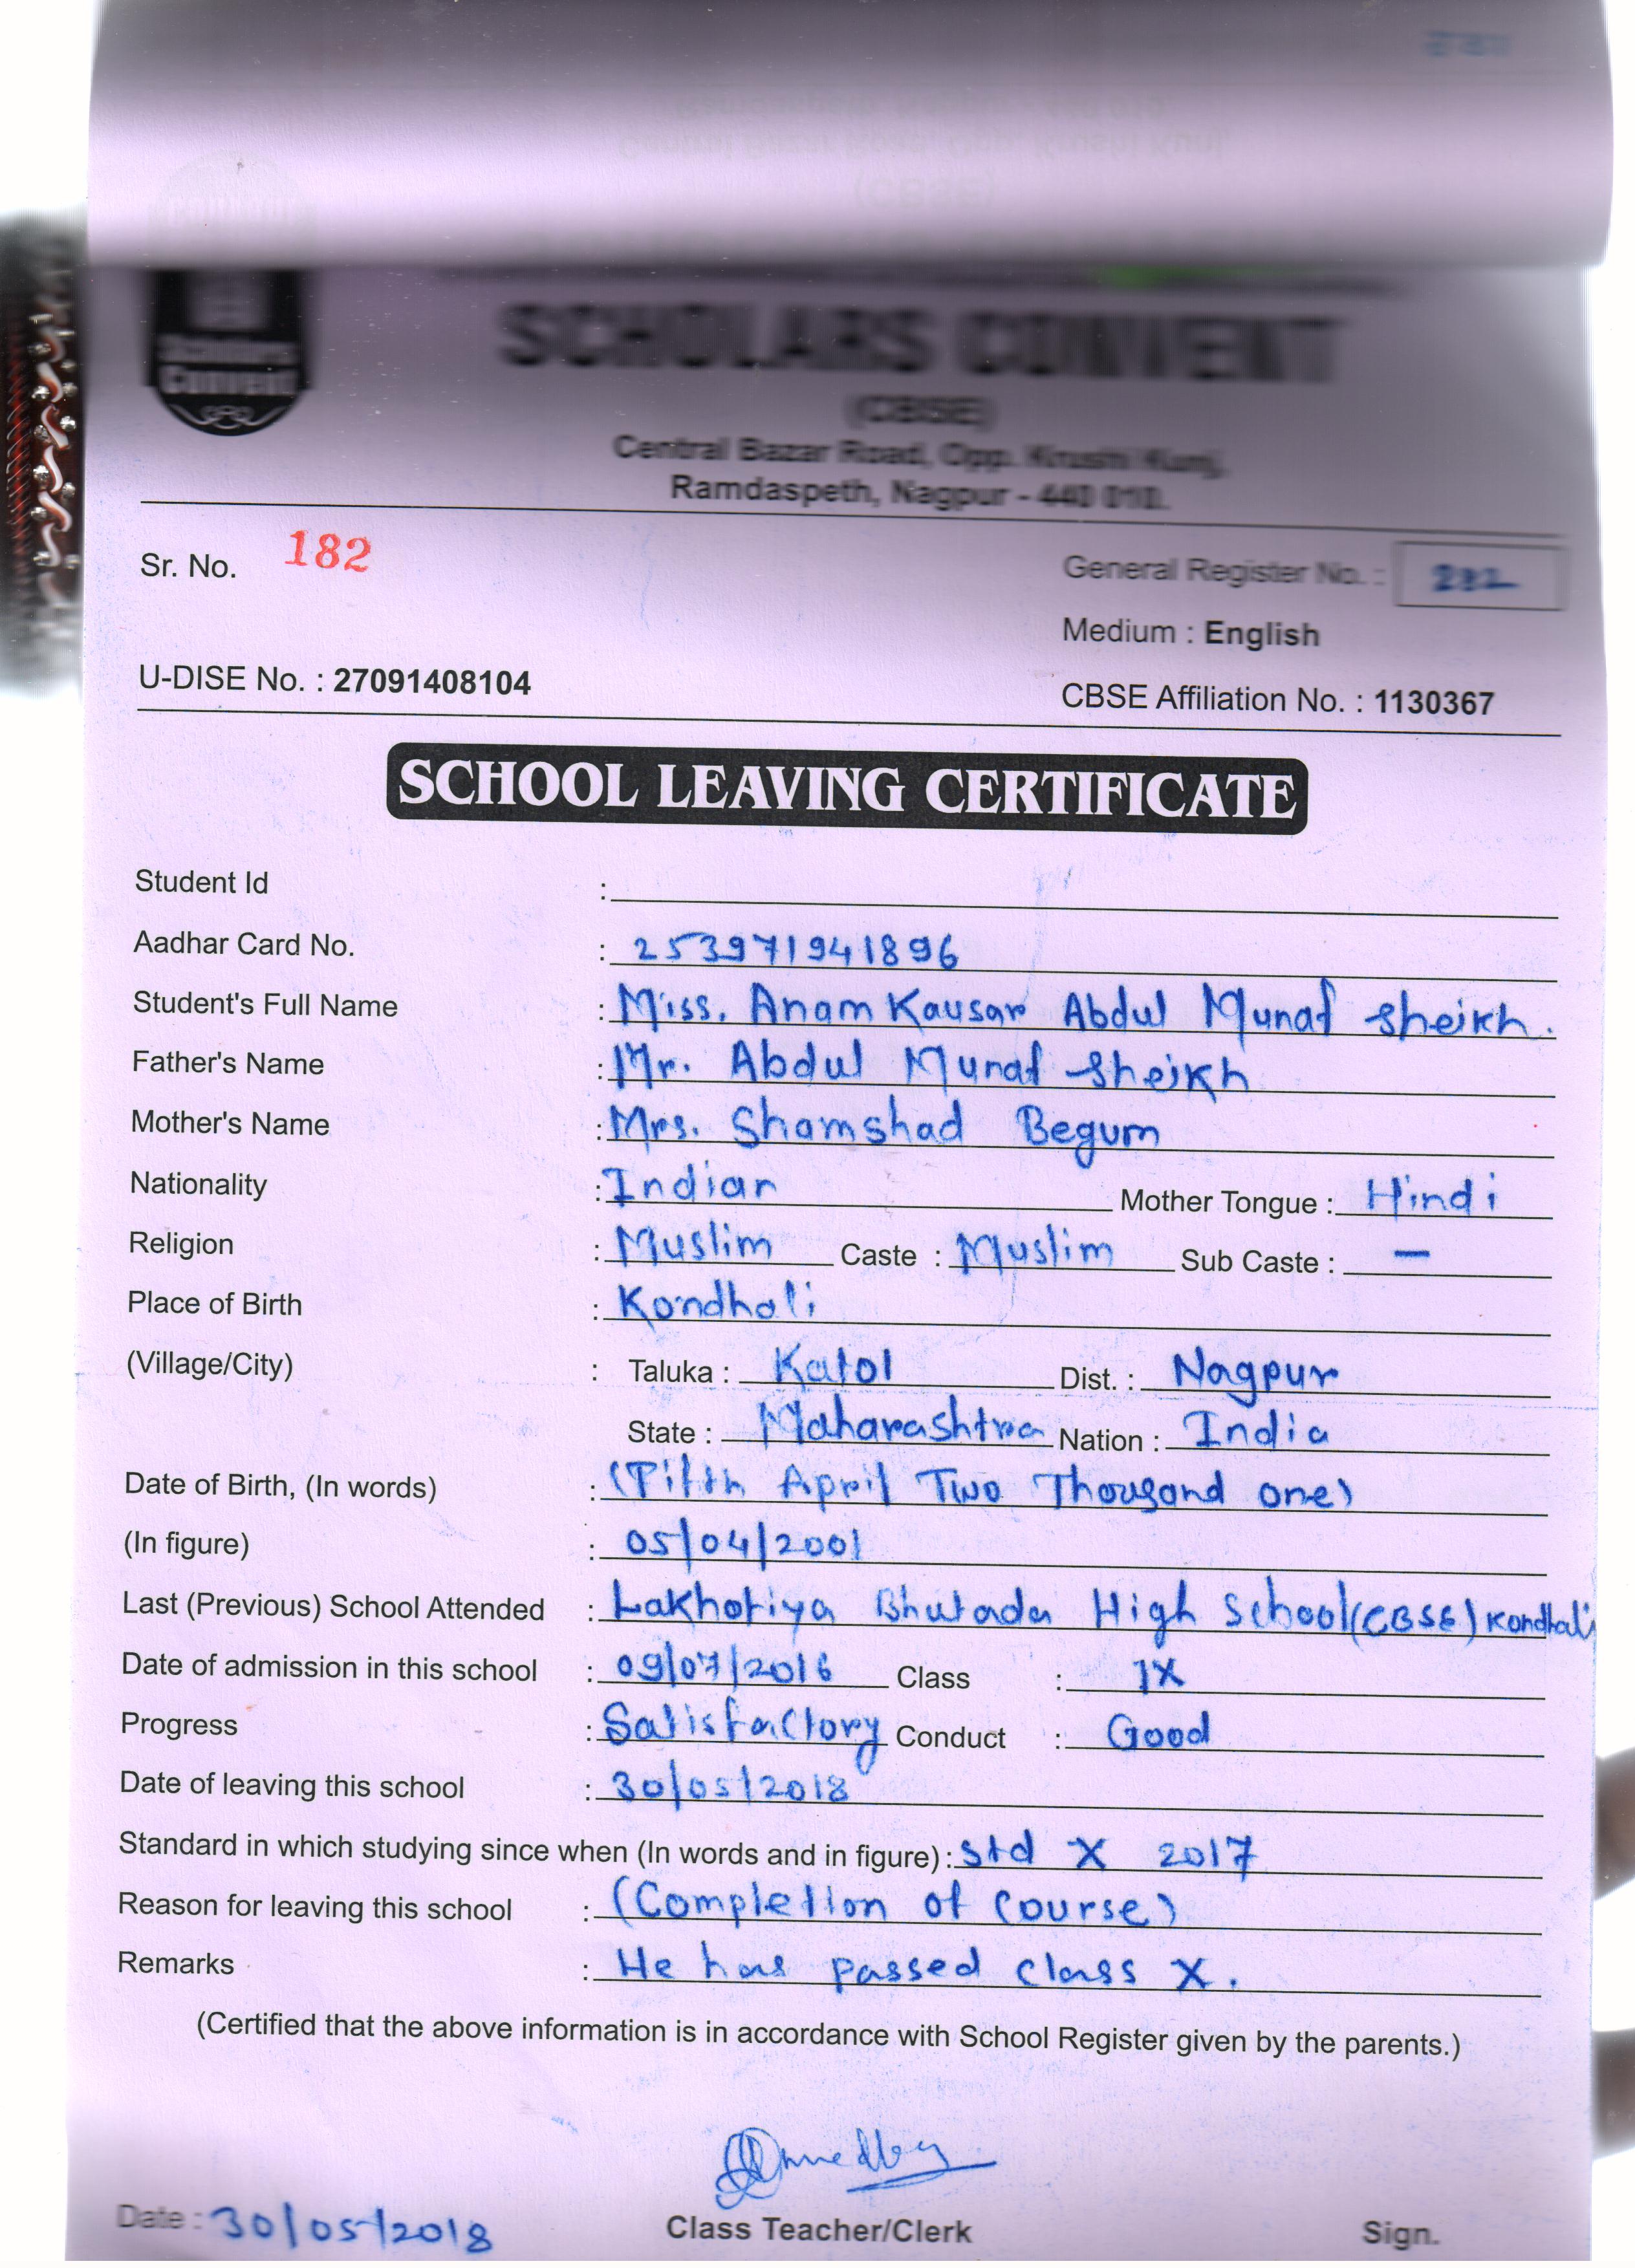 Scholars
Convent
SCHOLARS CONVENT
(CBSE)
Central Bazar Road, Opp. Krushi Kunj,
Ramdaspeth, Nagpur - 440 010.
Sr. No. 182
General Register No. :
Medium : English
U-DISE No. : 27091408104
CBSE Affiliation No. : 1130367
SCHOOL LEAVING CERTIFICATE
Student Id :
Aadhar Card No. : 253971941896
Student's Full Name : Miss. Anam Kausar Abdul Munaf Sheikh.
Father's Name : Mr. Abdul Munaf Sheikh
Mother's Name : Mrs. Shamshad Begum
Nationality : Indian Mother Tongue : Hindi
Religion : Muslim Caste : Muslim Sub Caste : —
Place of Birth : Kondhali
(Village/City) : Taluka : Katol Dist. : Nagpur
State : Maharashtra Nation : India
Date of Birth, (In words) : (Fifth April Two Thousand one)
(In figure) : 05/04/2001
Last (Previous) School Attended : Lakhotiya Bhutada High School (CBSE) Kondhali
Date of admission in this school : 09/07/2016 Class : IX
Progress : Satisfactory Conduct : Good
Date of leaving this school : 30/05/2018
Standard in which studying since when (In words and in figure) : Std X 2017
Reason for leaving this school : (Completion of Course)
Remarks : He has passed class X.
(Certified that the above information is in accordance with School Register given by the parents.)
Date : 30/05/2018
Class Teacher/Clerk
Sign.